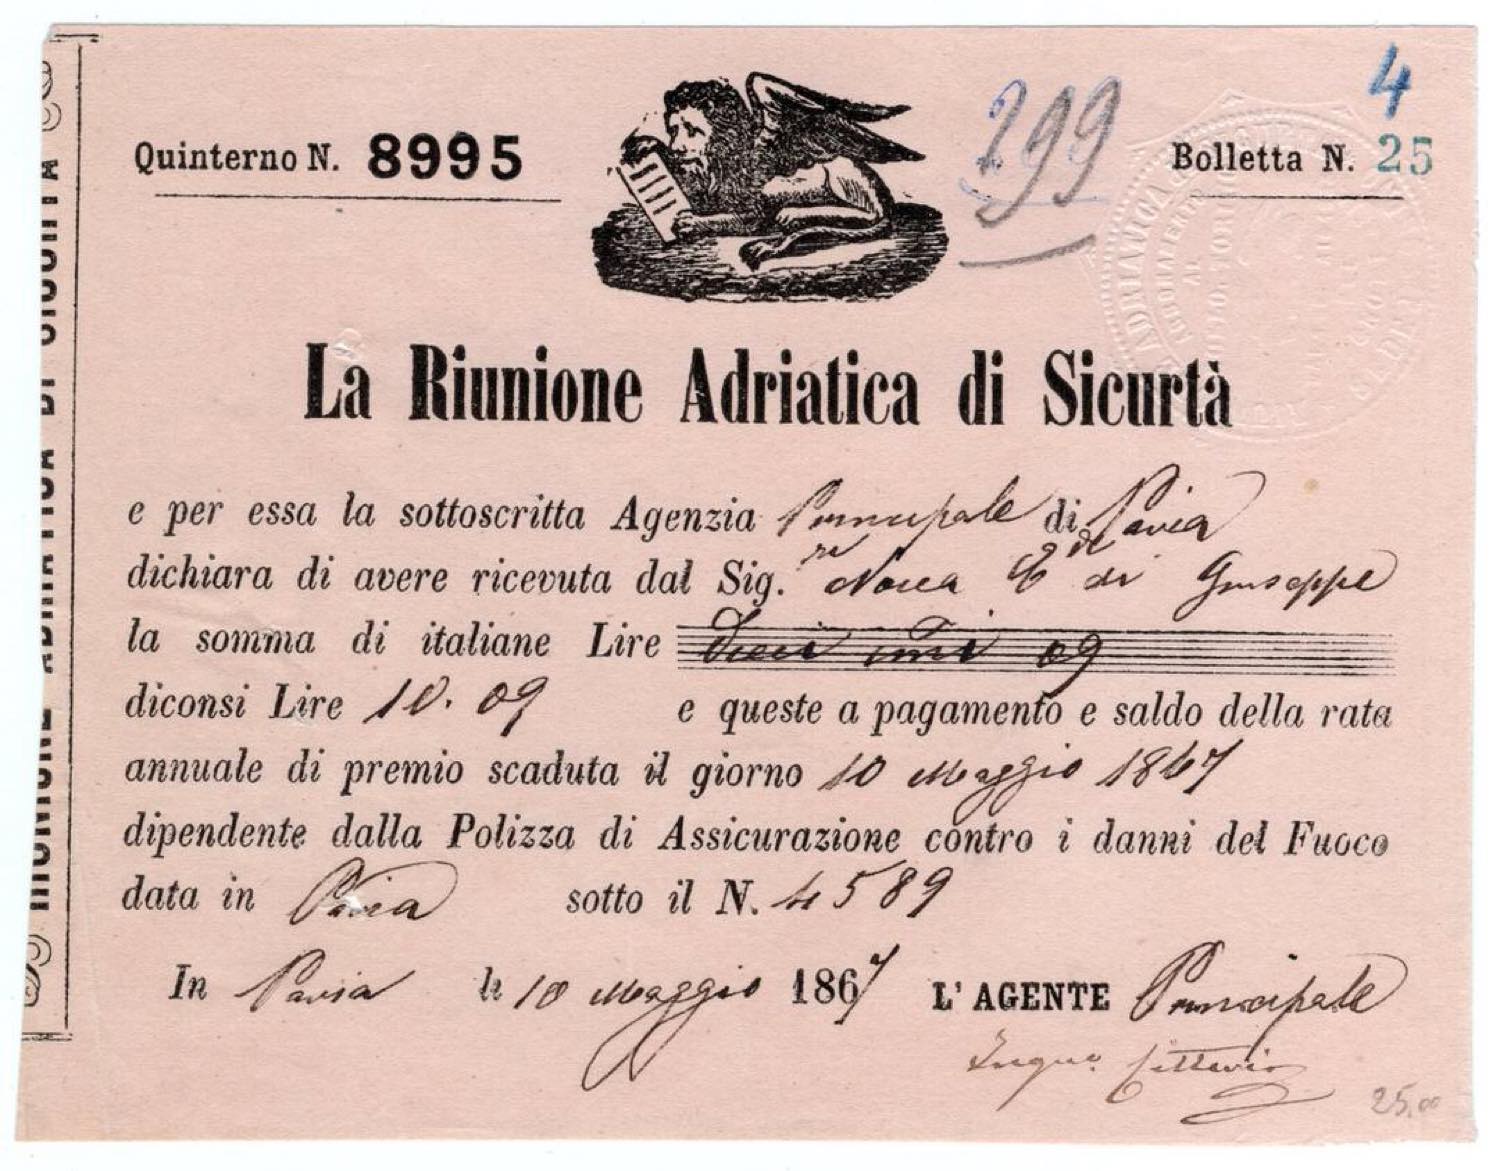 4
Quinterno N. 8995
299
Bolletta N. 25
La Riunione Adriatica di Sicurtà
e per essa la sottoscritta Agenzia Principale di Pavia
dichiara di avere ricevuta dal Sig. ri Nocca E de di Giuseppe
la somma di italiane Lire Dieci 09
diconsi Lire 10.09 e queste a pagamento e saldo della rata
annuale di premio scaduta il giorno 10 Maggio 1867
dipendente dalla Polizza di Assicurazione contro i danni del Fuoco
data in Pavia sotto il N. 4589
In Pavia li 10 Maggio 1867 L' AGENTE Principale
25,00
RIUNIONE ADRIATICA DI SICURTÀ